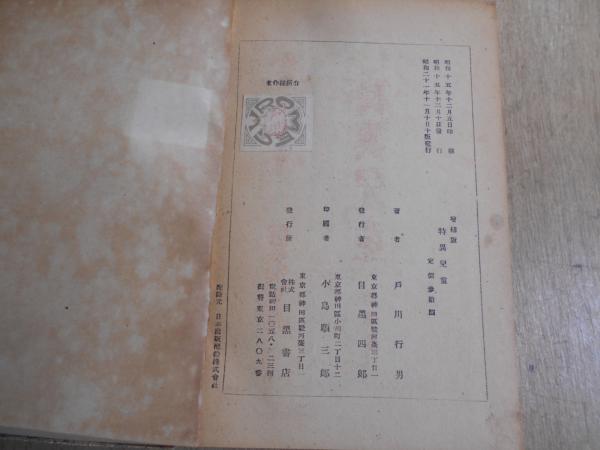 昭和十五年十二月五日印刷
昭和十五年十二月十日發行
昭和二十一年十一月十日十版發行
増補版
特異兒童
定價參拾圓
著者 戸川行男
東京都神田區駿河臺三丁目一
發行者 目黑四郎
東京都神田區小川町二丁目十二
印刷者 小島順三郎
東京都神田區駿河臺三丁目一
發行所 株式會社 目黑書店
電話神田一〇五八・二三四
振替東京二八〇九番
配給元 日本出版配給株式會社
MEGURO